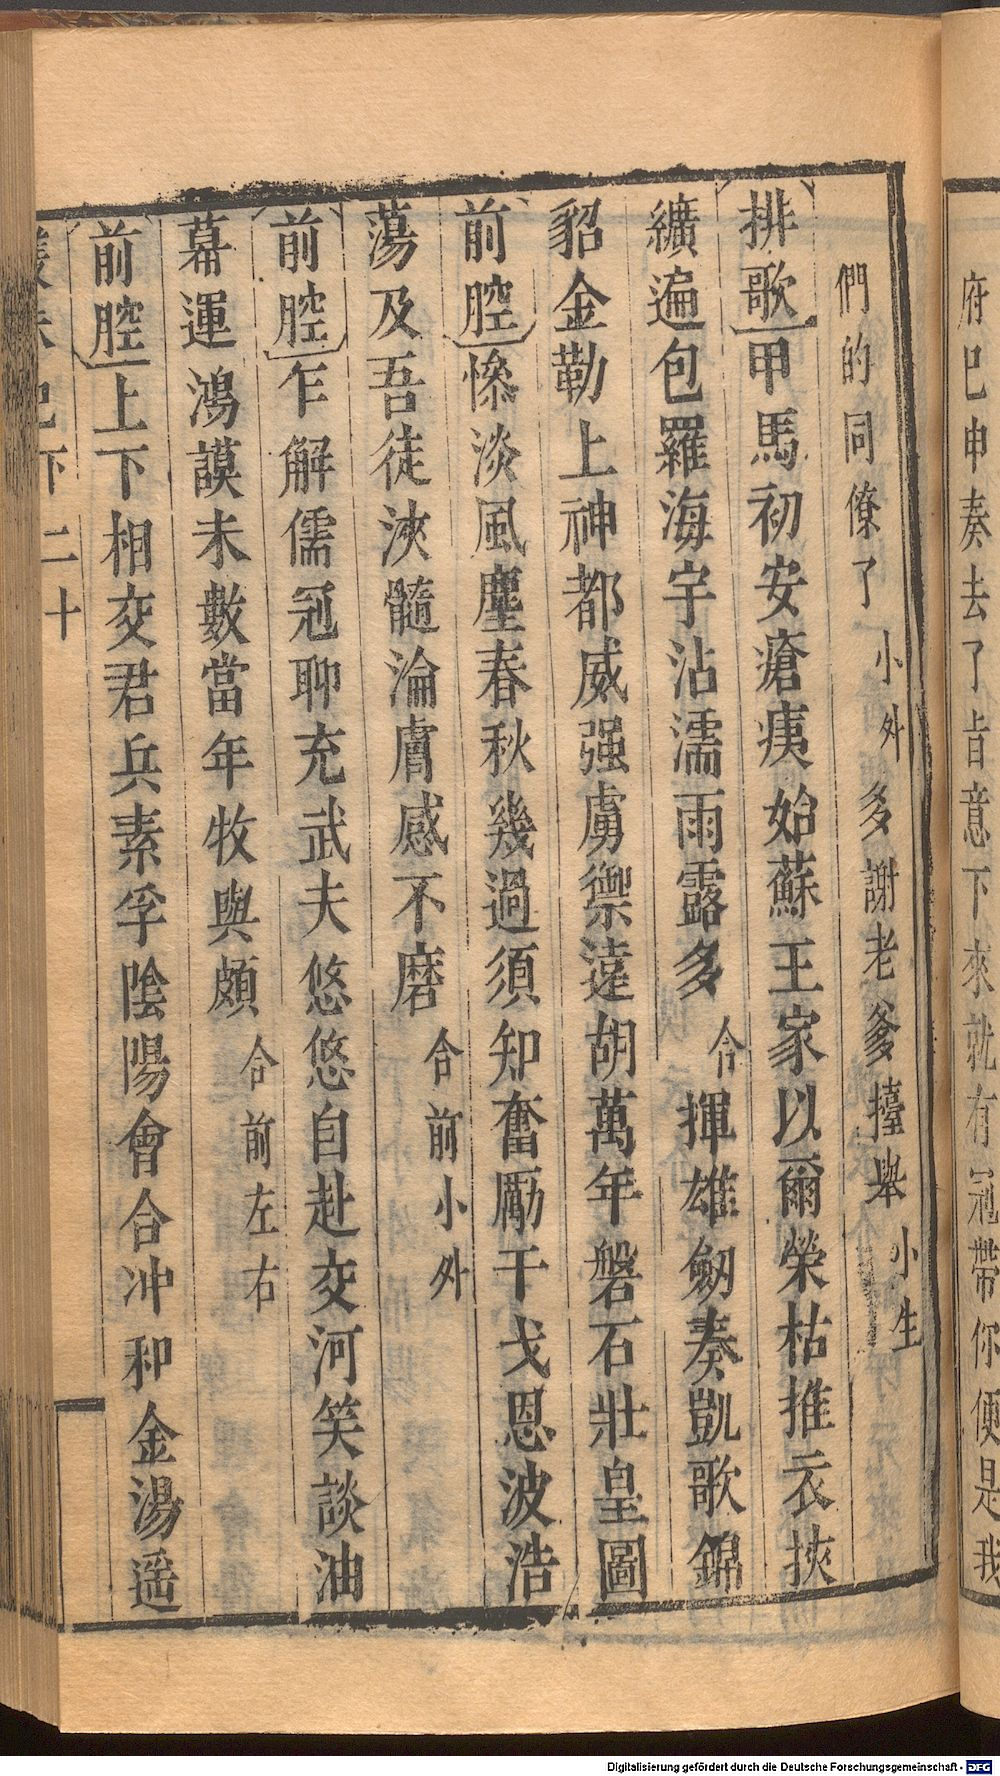 府已申奏去了旨意下來就有冠帶你便是我
們的同僚了小外多謝老爹擡舉小生
排歌甲馬初安瘡痍始蘇王家以爾榮枯推衣挾
纊遍包羅海宇沾濡雨露多合揮雄劒奏凱歌錦
貂金勒上神都威强虜禦遠胡萬年磐石壯皇圖
前腔慘淡風塵春秋幾過須知奮勵干戈恩波浩
蕩及吾徒浹髓淪膚感不磨合前小外
前腔乍解儒冠聊充武夫悠悠自赴交河笑談油
幕運鴻謨未數當年牧與頗合前左右
前腔上下相交君兵素孚陰陽會合冲和金湯遥
記下 二十
Digitalisierung gefördert durch die Deutsche Forschungsgemeinschaft - DFG